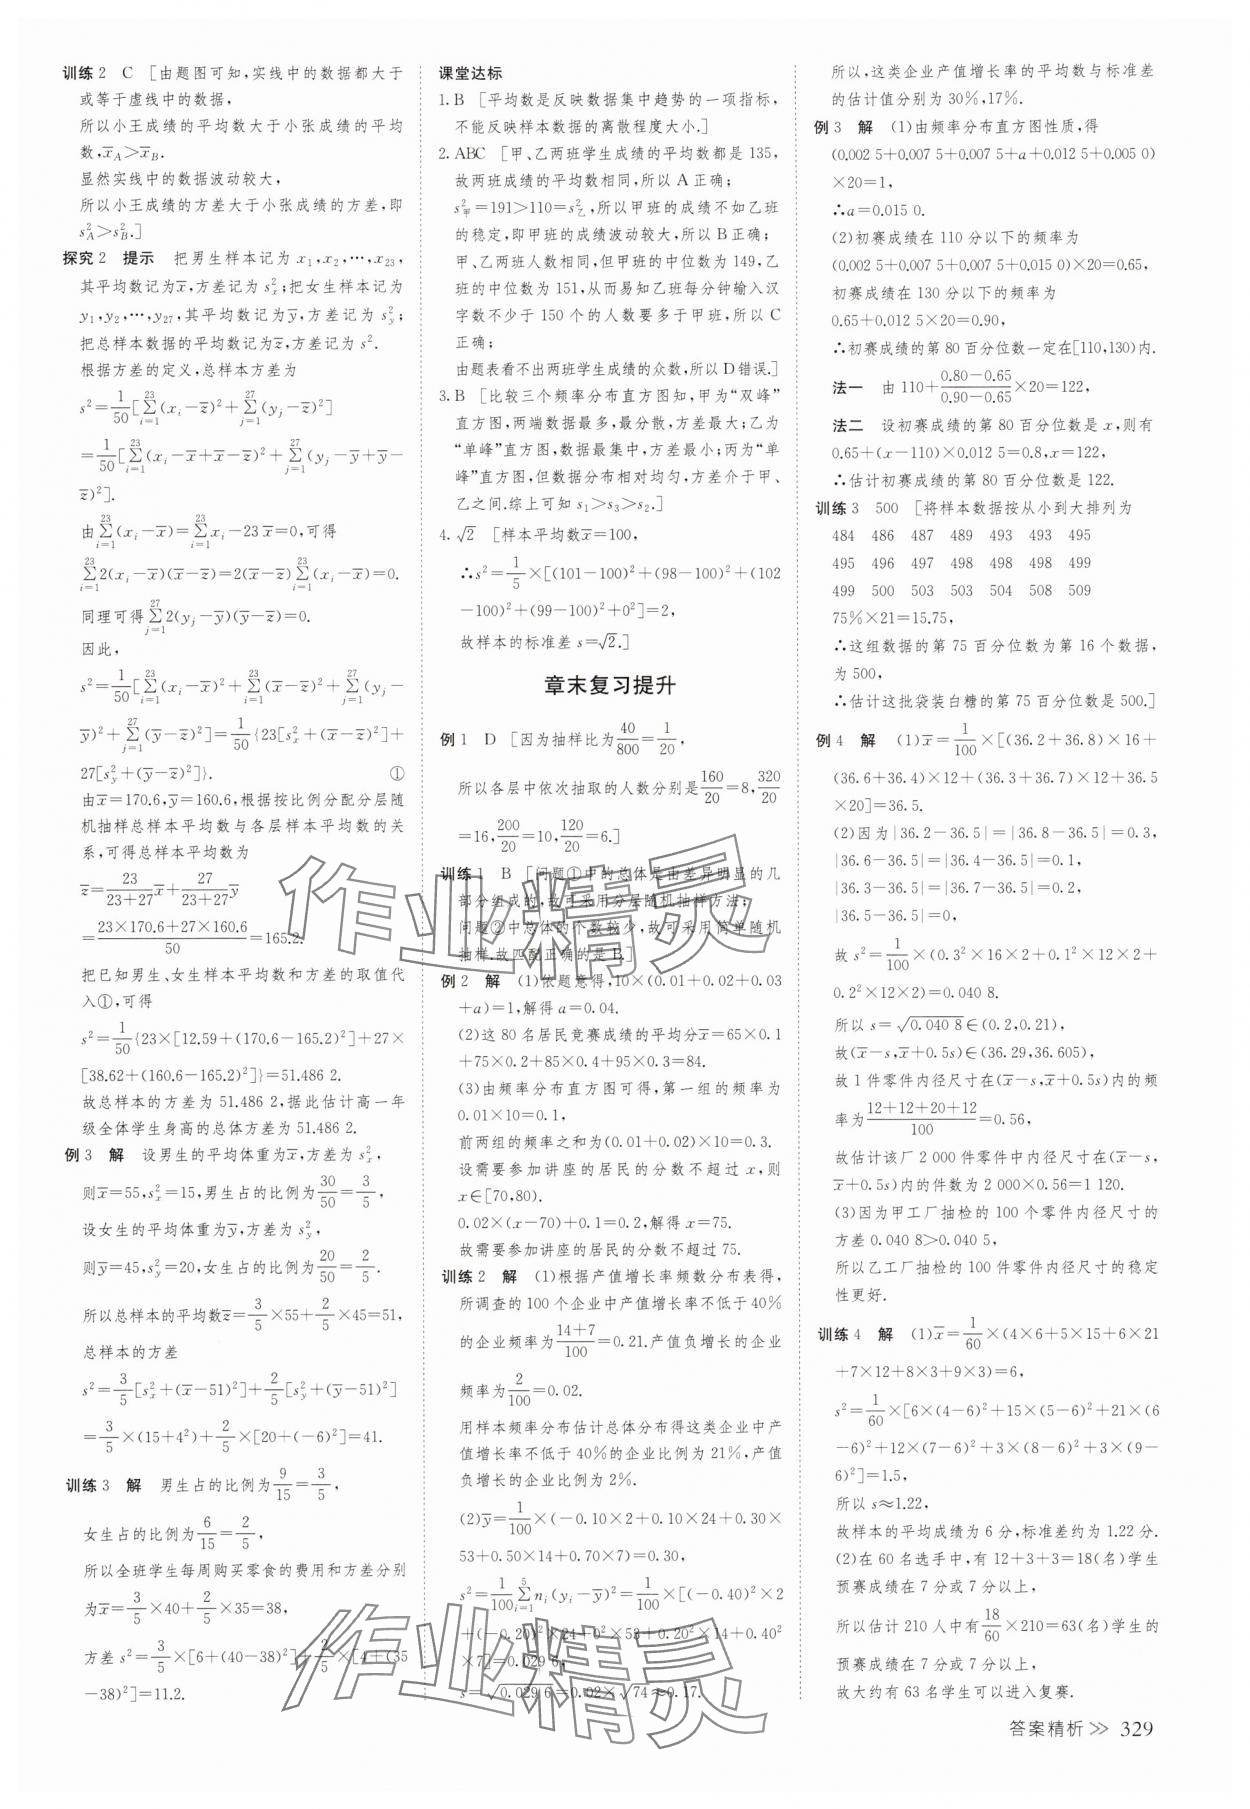 训练2 C [由题图可知,实线中的数据都大于
或等于虚线中的数据,
所以小王成绩的平均数大于小张成绩的平均
数,x̄_A>x̄_B.
显然实线中的数据波动较大,
所以小王成绩的方差大于小张成绩的方差,即
s²_A>s²_B.]
探究2 提示 把男生样本记为 x₁,x₂,…,x₂₃,
其平均数记为x̄,方差记为 s²_x;把女生样本记为
y₁,y₂,…,y₂₇,其平均数记为ȳ,方差记为 s²_y;
把总样本数据的平均数记为z̄,方差记为 s².
根据方差的定义,总样本方差为
s²=1/50[∑_{i=1}^{23}(x_i-z̄)²+∑_{j=1}^{27}(y_j-z̄)²]
=1/50[∑_{i=1}^{23}(x_i-x̄+x̄-z̄)²+∑_{j=1}^{27}(y_j-ȳ+ȳ-
z̄)²].
由∑_{i=1}^{23}(x_i-x̄)=∑_{i=1}^{23}x_i-23x̄=0,可得
∑_{i=1}^{23}2(x_i-x̄)(x̄-z̄)=2(x̄-z̄)∑_{i=1}^{23}(x_i-x̄)=0.
同理可得∑_{j=1}^{27}2(y_j-ȳ)(ȳ-z̄)=0.
因此,
s²=1/50[∑_{i=1}^{23}(x_i-x̄)²+∑_{i=1}^{23}(x̄-z̄)²+∑_{j=1}^{27}(y_j-
ȳ)²+∑_{j=1}^{27}(ȳ-z̄)²]=1/50{23[s²_x+(x̄-z̄)²]+
27[s²_y+(ȳ-z̄)²]}. ①
由x̄=170.6,ȳ=160.6,根据按比例分配分层随
机抽样总样本平均数与各层样本平均数的关
系,可得总样本平均数为
z̄=23/(23+27)x̄+27/(23+27)ȳ
=(23×170.6+27×160.6)/50=165.2.
把已知男生、女生样本平均数和方差的取值代
入①,可得
s²=1/50{23×[12.59+(170.6-165.2)²]+27×
[38.62+(160.6-165.2)²]}=51.486 2.
故总样本的方差为 51.486 2,据此估计高一年
级全体学生身高的总体方差为 51.486 2.
例3 解 设男生的平均体重为x̄,方差为 s²_x,
则x̄=55,s²_x=15,男生占的比例为30/50=3/5,
设女生的平均体重为ȳ,方差为 s²_y,
则ȳ=45,s²_y=20,女生占的比例为20/50=2/5.
所以总样本的平均数z̄=3/5×55+2/5×45=51,
总样本的方差
s²=3/5[s²_x+(x̄-51)²]+2/5[s²_y+(ȳ-51)²]
=3/5×(15+4²)+2/5×[20+(-6)²]=41.
训练3 解 男生占的比例为9/15=3/5,
女生占的比例为6/15=2/5,
所以全班学生每周购买零食的费用和方差分别
为x̄=3/5×40+2/5×35=38,
方差 s²=3/5×[6+(40-38)²]+2/5×[4+(35
-38)²]=11.2.
课堂达标
1.B [平均数是反映数据集中趋势的一项指标,
不能反映样本数据的离散程度大小.]
2.ABC [甲、乙两班学生成绩的平均数都是 135,
故两班成绩的平均数相同,所以 A 正确;
s²_甲=191>110=s²_乙,所以甲班的成绩不如乙班
的稳定,即甲班的成绩波动较大,所以 B 正确;
甲、乙两班人数相同,但甲班的中位数为 149,乙
班的中位数为 151,从而易知乙班每分钟输入汉
字数不少于 150 个的人数要多于甲班,所以 C
正确;
由题表看不出两班学生成绩的众数,所以 D 错误.]
3.B [比较三个频率分布直方图知,甲为“双峰”
直方图,两端数据最多,最分散,方差最大;乙为
“单峰”直方图,数据最集中,方差最小;丙为“单
峰”直方图,但数据分布相对均匀,方差介于甲、
乙之间.综上可知 s₁>s₃>s₂.]
4.√2 [样本平均数x̄=100,
∴s²=1/5×[(101-100)²+(98-100)²+(102
-100)²+(99-100)²+0²]=2,
故样本的标准差 s=√2.]
章末复习提升
例1 D [因为抽样比为40/800=1/20,
所以各层中依次抽取的人数分别是160/20=8,320/20
=16,200/20=10,120/20=6.]
训练1 B [问题①中的总体是由差异明显的几
部分组成的,故可采用分层随机抽样方法;
问题②中总体的个数较少,故可采用简单随机
抽样.故匹配正确的是 B.]
例2 解 (1)依题意得,10×(0.01+0.02+0.03
+a)=1,解得 a=0.04.
(2)这 80 名居民竞赛成绩的平均分x̄=65×0.1
+75×0.2+85×0.4+95×0.3=84.
(3)由频率分布直方图可得,第一组的频率为
0.01×10=0.1,
前两组的频率之和为(0.01+0.02)×10=0.3.
设需要参加讲座的居民的分数不超过 x,则
x∈[70,80).
0.02×(x-70)+0.1=0.2,解得 x=75.
故需要参加讲座的居民的分数不超过 75.
训练2 解 (1)根据产值增长率频数分布表得,
所调查的 100 个企业中产值增长率不低于 40%
的企业频率为(14+7)/100=0.21.产值负增长的企业
频率为2/100=0.02.
用样本频率分布估计总体分布得这类企业中产
值增长率不低于 40%的企业比例为 21%,产值
负增长的企业比例为 2%.
(2)ȳ=1/100×(-0.10×2+0.10×24+0.30×
53+0.50×14+0.70×7)=0.30,
s²=1/100∑_{i=1}^{5}n_i(y_i-ȳ)²=1/100×[(-0.40)²×2
+(-0.20)²×24+0²×53+0.20²×14+0.40²
×7]=0.029 6,
s=√0.029 6=0.02×√74≈0.17.
所以,这类企业产值增长率的平均数与标准差
的估计值分别为 30%,17%.
例3 解 (1)由频率分布直方图性质,得
(0.002 5+0.007 5+0.007 5+a+0.012 5+0.005 0)
×20=1,
∴a=0.015 0.
(2)初赛成绩在 110 分以下的频率为
(0.002 5+0.007 5+0.007 5+0.015 0)×20=0.65,
初赛成绩在 130 分以下的频率为
0.65+0.012 5×20=0.90,
∴初赛成绩的第 80 百分位数一定在[110,130)内.
法一 由 110+(0.80-0.65)/(0.90-0.65)×20=122,
法二 设初赛成绩的第 80 百分位数是 x,则有
0.65+(x-110)×0.012 5=0.8,x=122,
∴估计初赛成绩的第 80 百分位数是 122.
训练3 500 [将样本数据按从小到大排列为
484 486 487 489 493 493 495
495 496 497 498 498 498 499
499 500 503 503 504 508 509
75%×21=15.75,
∴这组数据的第 75 百分位数为第 16 个数据,
为 500,
∴估计这批袋装白糖的第 75 百分位数是 500.]
例4 解 (1)x̄=1/100×[(36.2+36.8)×16+
(36.6+36.4)×12+(36.3+36.7)×12+36.5
×20]=36.5.
(2)因为|36.2-36.5|=|36.8-36.5|=0.3,
|36.6-36.5|=|36.4-36.5|=0.1,
|36.3-36.5|=|36.7-36.5|=0.2,
|36.5-36.5|=0,
故 s²=1/100×(0.3²×16×2+0.1²×12×2+
0.2²×12×2)=0.040 8.
所以 s=√0.040 8∈(0.2,0.21),
故(x̄-s,x̄+0.5s)∈(36.29,36.605),
故 1 件零件内径尺寸在(x̄-s,x̄+0.5s)内的频
率为(12+12+20+12)/100=0.56,
故估计该厂 2 000 件零件中内径尺寸在(x̄-s,
x̄+0.5s)内的件数为 2 000×0.56=1 120.
(3)因为甲工厂抽检的 100 个零件内径尺寸的
方差 0.040 8>0.040 5,
所以乙工厂抽检的 100 件零件内径尺寸的稳定
性更好.
训练4 解 (1)x̄=1/60×(4×6+5×15+6×21
+7×12+8×3+9×3)=6,
s²=1/60×[6×(4-6)²+15×(5-6)²+21×(6
-6)²+12×(7-6)²+3×(8-6)²+3×(9-
6)²]=1.5,
所以 s≈1.22,
故样本的平均成绩为 6 分,标准差约为 1.22 分.
(2)在 60 名选手中,有 12+3+3=18(名)学生
预赛成绩在 7 分或 7 分以上,
所以估计 210 人中有18/60×210=63(名)学生的
预赛成绩在 7 分或 7 分以上,
故大约有 63 名学生可以进入复赛.
作业精灵
作业精灵
答案精析 >> 329